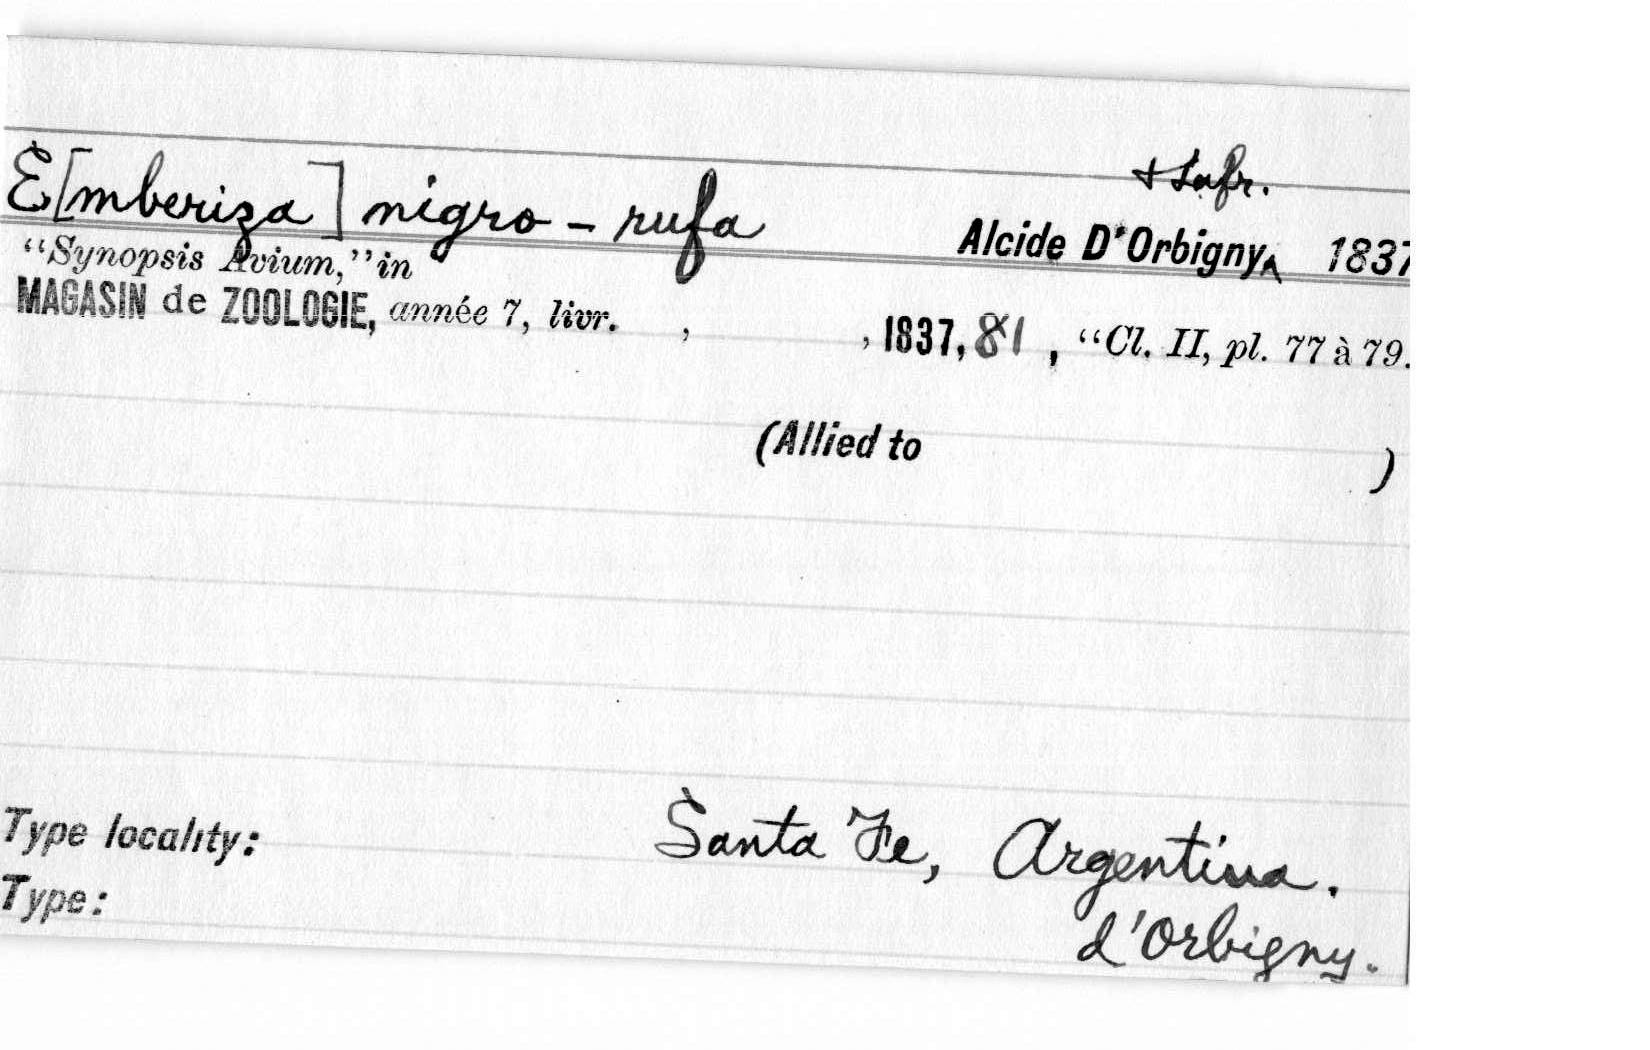 E[mberiza] nigro-rufa
+ Lafr.
Alcide D'Orbigny‸ 1837
"Synopsis Avium," in
MAGASIN de ZOOLOGIE, année 7, livr. , , 1837, 81 , "Cl. II, pl. 77 à 79.
(Allied to )
Type locality: Santa Fe, Argentina.
Type: d'Orbigny.